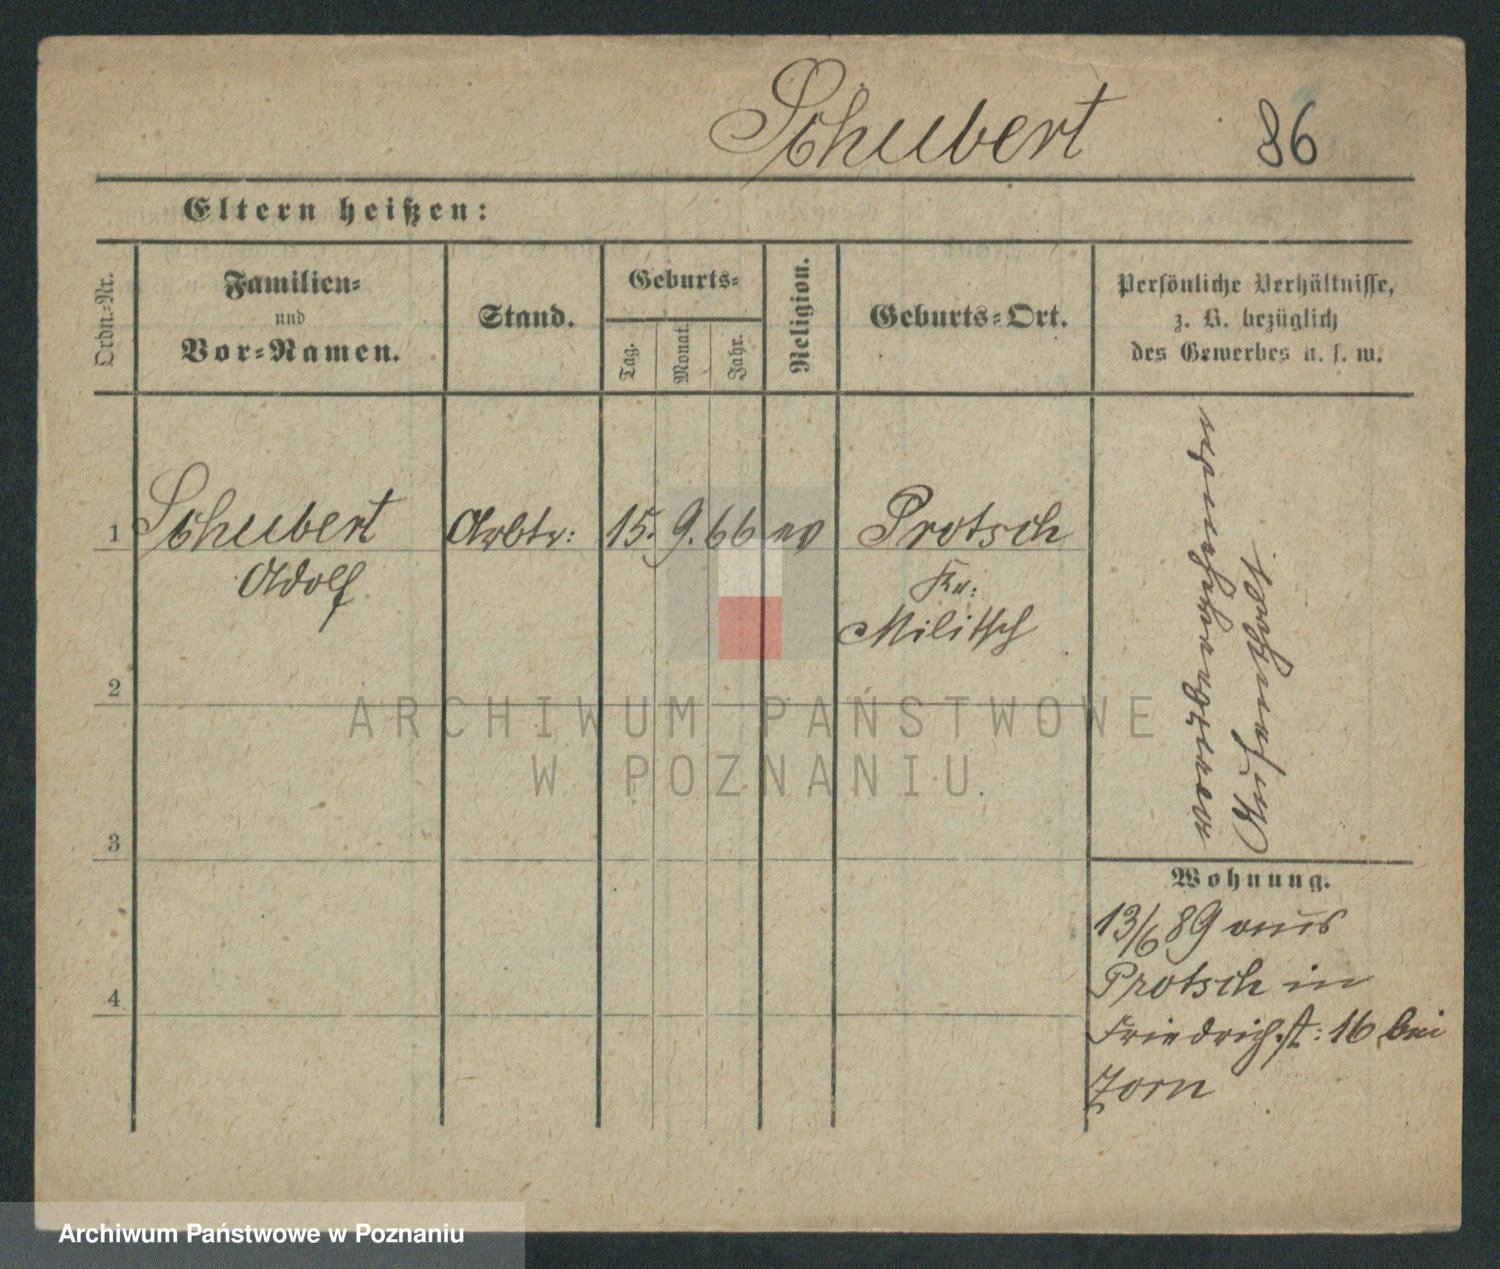 Schubert 86
Eltern heißen:
Ordn.-Nr.
Familien-
und
Vor-Namen.
Stand.
Geburts-
Tag.
Monat.
Jahr.
Religion.
Geburts-Ort.
Persönliche Verhältnisse,
z. B. bezüglich
des Gewerbes u. s. w.
1 Schubert Arbtr: 15. 9. 66 ev Protsch
Adolf Kr:
Militsch
2
3
4
Wohnung.
13/6 89 aus
Protsch in
Friedrichst: 16 bei
Zorn
ARCHIWUM PAŃSTWOWE
W POZNANIU
Archiwum Państwowe w Poznaniu